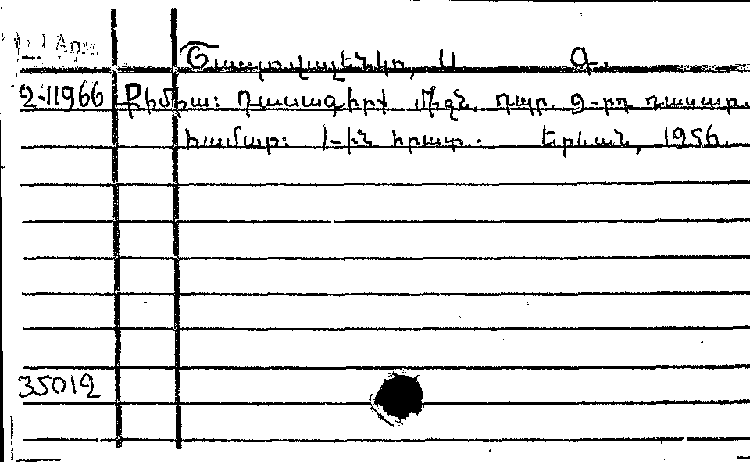 Շապովալենկո, Ա. Գ.
2-11966 Քիմիա: Դասագիրք միջն. դպր. 9-րդ դասար.
համար: 1-ին հրատ. Երևան, 1956.
35012